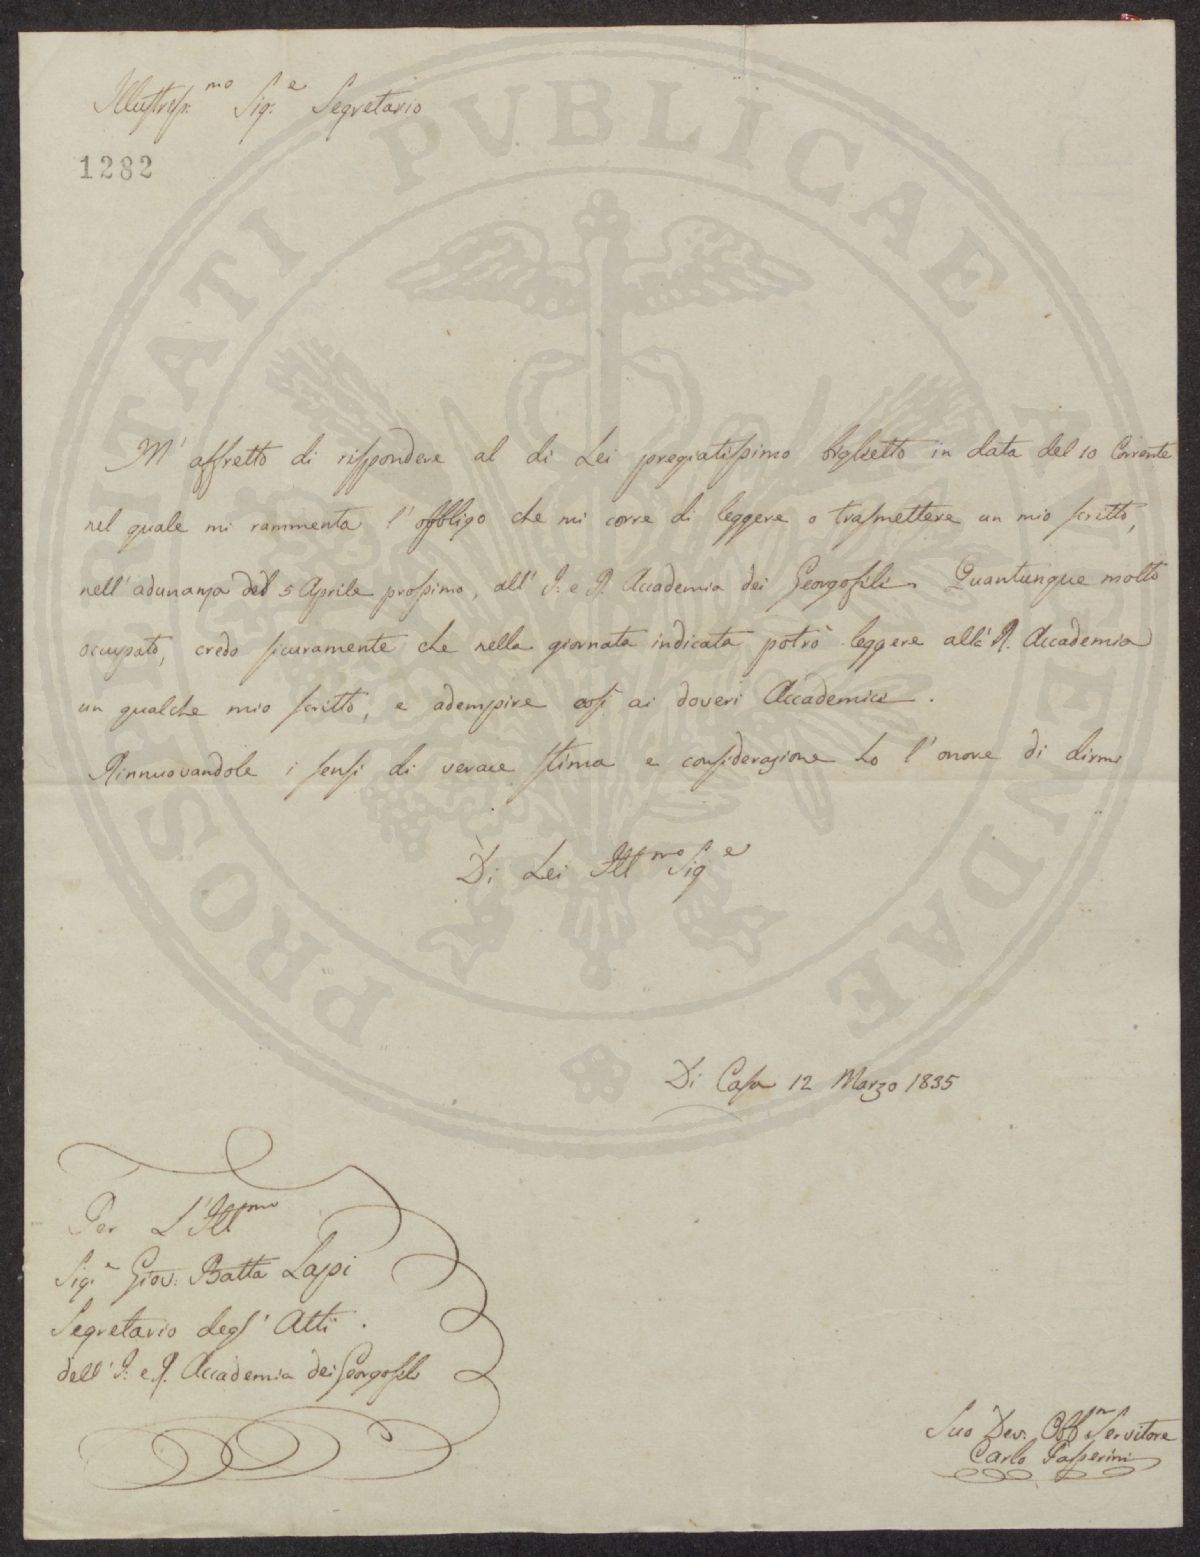 Illustriss.mo Sig.e Segretario
1282
M'affretto di rispondere al di Lei pregiatissimo biglietto in data del 10 Corrente
nel quale mi rammenta l'obbligo che mi corre di leggere o trasmettere un mio scritto,
nell'adunanza del 5 Aprile prossimo, all'I. e R. Accademia dei Georgofili. Quantunque molto
occupato, credo sicuramente che nella giornata indicata potrò leggere all'R. Accademia
un qualche mio scritto, e adempire così ai doveri Accademici.
Rinnuovandole i sensi di verace stima e considerazione ho l'onore di dirmi
Di Lei Ill.mo Sig.e
Di Casa 12 Marzo 1835
Per L'Ill.mo
Sig.e Giov: Batta Lapi
Segretario degl'Atti.
dell'I. e R. Accademia dei Georgofili
Suo Dev. Obb.o Servitore
Carlo Passerini
PROSPERITATI PVBLICAE AVGENDAE